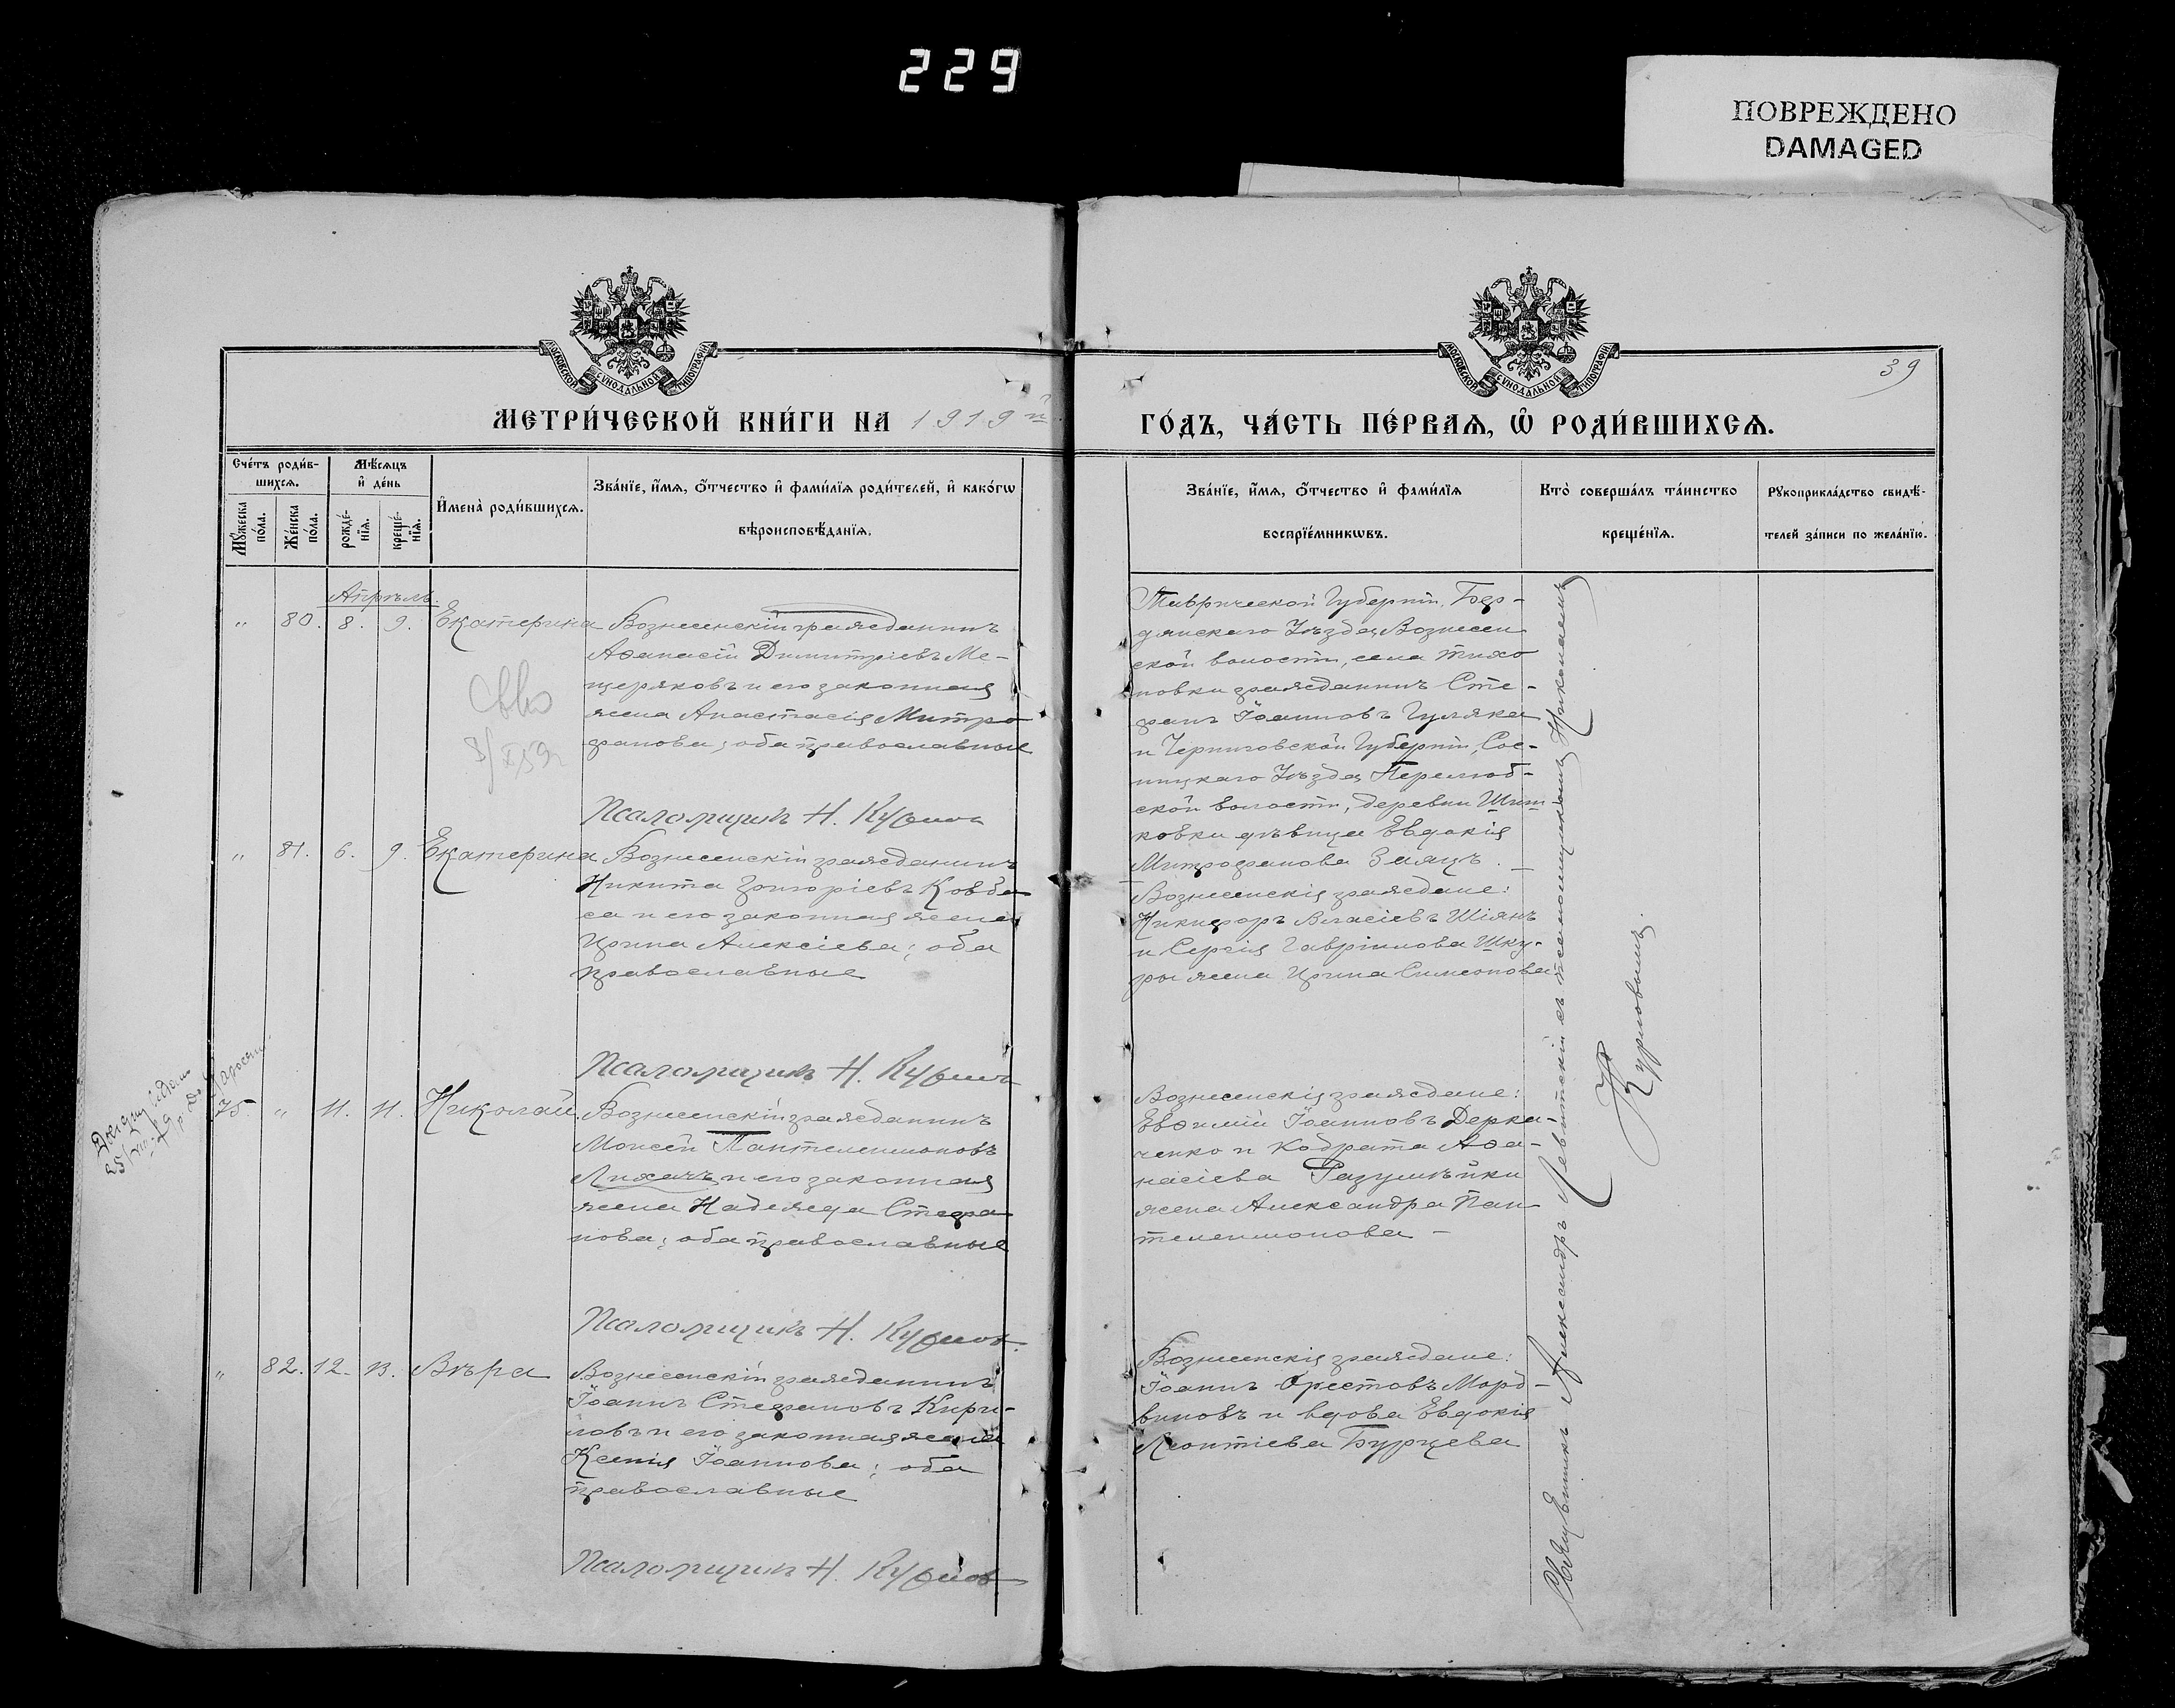 229
ПОВРЕЖДЕНО
DAMAGED
МОСКОВСКОЙ СѴНОДАЛЬНОЙ ТИПОГРАФІИ
МОСКОВСКОЙ СѴНОДАЛЬНОЙ ТИПОГРАФІИ
39
МЕТРИ́ЧЕСКОЙ КНИ́ГИ НА 1919й
ГО́ДЪ, ЧА́СТЬ ПЕ́РВАѦ, Ѡ҆ РОДИ́ВШИХСѦ.
Сче́тъ роди́в-
шихсѧ.
Мꙋ́жеска
по́ла.
Же́нска
по́ла.
Мѣ́сѧцъ
и҆ де́нь
рожде́-
нїѧ.
креще́-
нїѧ.
И҆мена̀ роди́вшихсѧ.
Зва́нїе, и҆́мѧ, ѻ҆́тчество и҆ фами́лїѧ роди́телей, и҆ како́гѡ
вѣроисповѣ́данїѧ.
Зва́нїе, и҆́мѧ, ѻ҆́тчество и҆ фами́лїѧ
воспрїе́мникѡвъ.
Кто̀ соверша́лъ та́инство
креще́нїѧ.
Рꙋкоприкла́дство свидѣ́-
телей за́писи по жела́нїю.
Апрѣль.
" 80. 8. 9. Екатерина
Вознесенскій гражданинъ
Аѳанасій Димитріевъ Ме-
щеряковъ и его законная
жена Анастасія Митро
фанова; оба православные
Псаломщикъ Н.
Таврической Губерніи, Бер-
дянскаго Уѣзда, Вознесен
ской волости, села Тихо
новки гражданинъ Сте-
фанъ Іоанновъ Гуляка
и Черниговской Губерніи, Сос-
ницкаго Уѣзда, Перелюб-
ской волости, деревни Шиш-
ковки дѣвица Евдокія
Митрофанова Заяцъ. —
" 81. 6. 9. Екатерина
Вознесенскій гражданинъ
Никита Григоріевъ Ковба
са и его законная жена
Ирина Алексіева; оба
православные
Псаломщикъ Н.
Вознесенскія граждане:
Никифоръ Власіевъ Шіянъ
и Сергія Гавріилова Шку-
ры жена Ирина Симеонова
75. " 11. 11. Николай.
Вознесенскій гражданинъ
Моисей Пантелеимоновъ
Лихачъ и его законная
жена Надежда Стефа
нова; оба православные
Псаломщикъ Н.
Вознесенскія граждане:
Евѳимій Іоанновъ Дерка-
ченко и Кодрата Аѳа-
насіева Разумѣйки
жена Александра Пан
телеимонова —
" 82. 12. 13. Вѣра
Вознесенскій гражданинъ
Іоаннъ Стефановъ Кири-
ловъ и его законная жена
Ксенія Іоаннова; оба
православные
Псаломщикъ Н.
Вознесенскія граждане:
Іоаннъ Орестовъ Морд-
виновъ и вдова Евдокія
Леонтіева Бурцева
Священникъ Александръ Левитскій съ псаломщикомъ Николаемъ